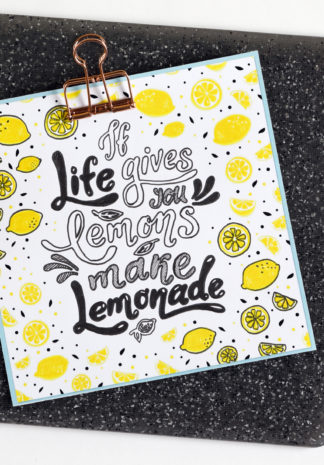 If
Life gives
you
lemons
make
Lemonade